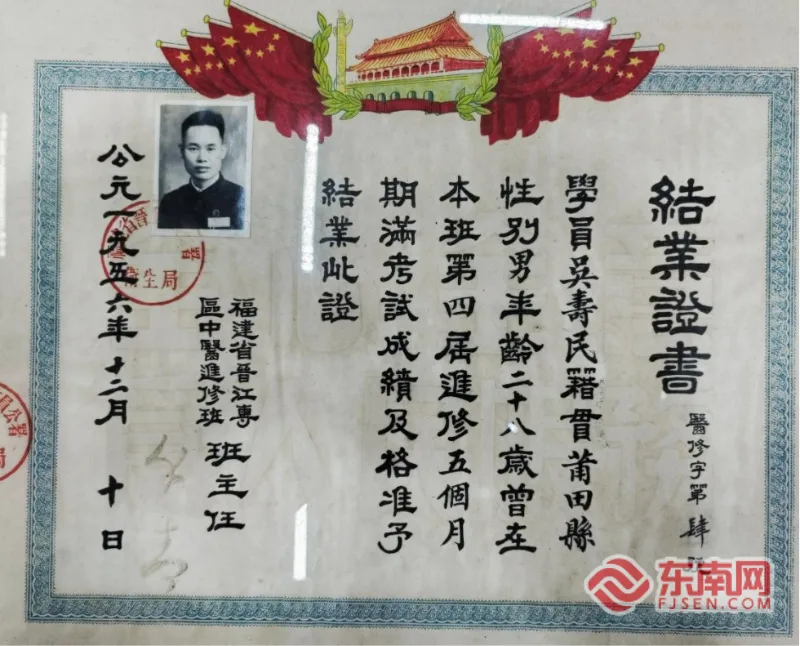 結業證書
醫修字第肆號
學員吳壽民籍貫莆田縣
性別男年齡二十八歲曾在
本班第四届進修五個月
期滿考試成績及格准予
結業此證
福建省晉江專
區中醫進修班
班主任
公元一九五六年十二月 十日
東南网
FJSEN.COM